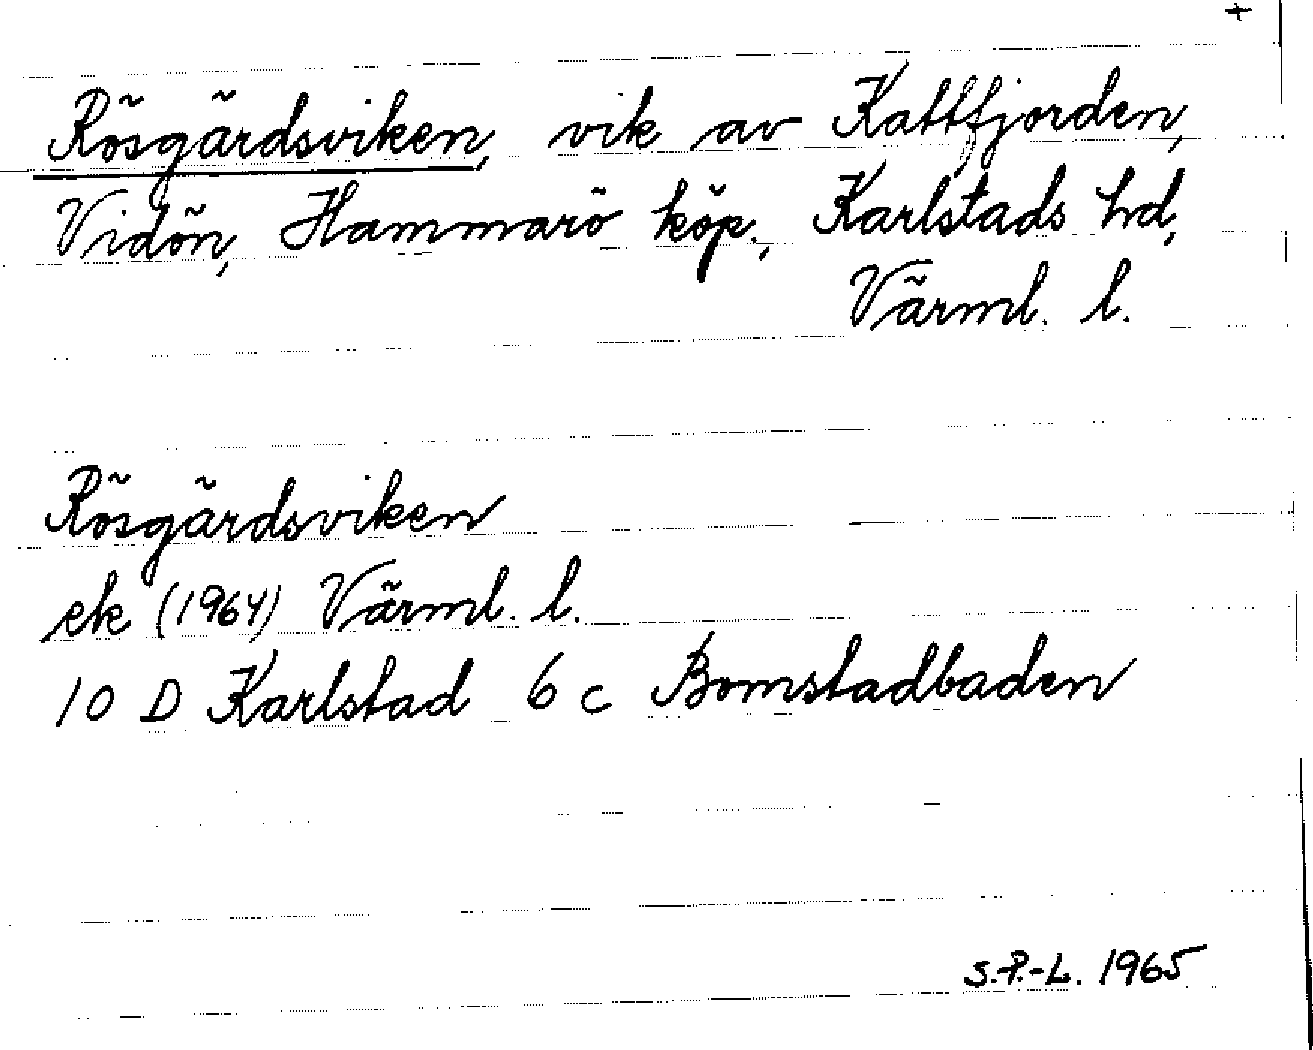 +
Rösgärdsviken, vik av Kattfjorden,
Vidön, Hammarö köp., Karlstads hd,
Värml. l.
Rösgärdsviken
ek (1964) Värml. l.
10 D Karlstad 6 c Bomstadbaden
S.P.-L. 1965